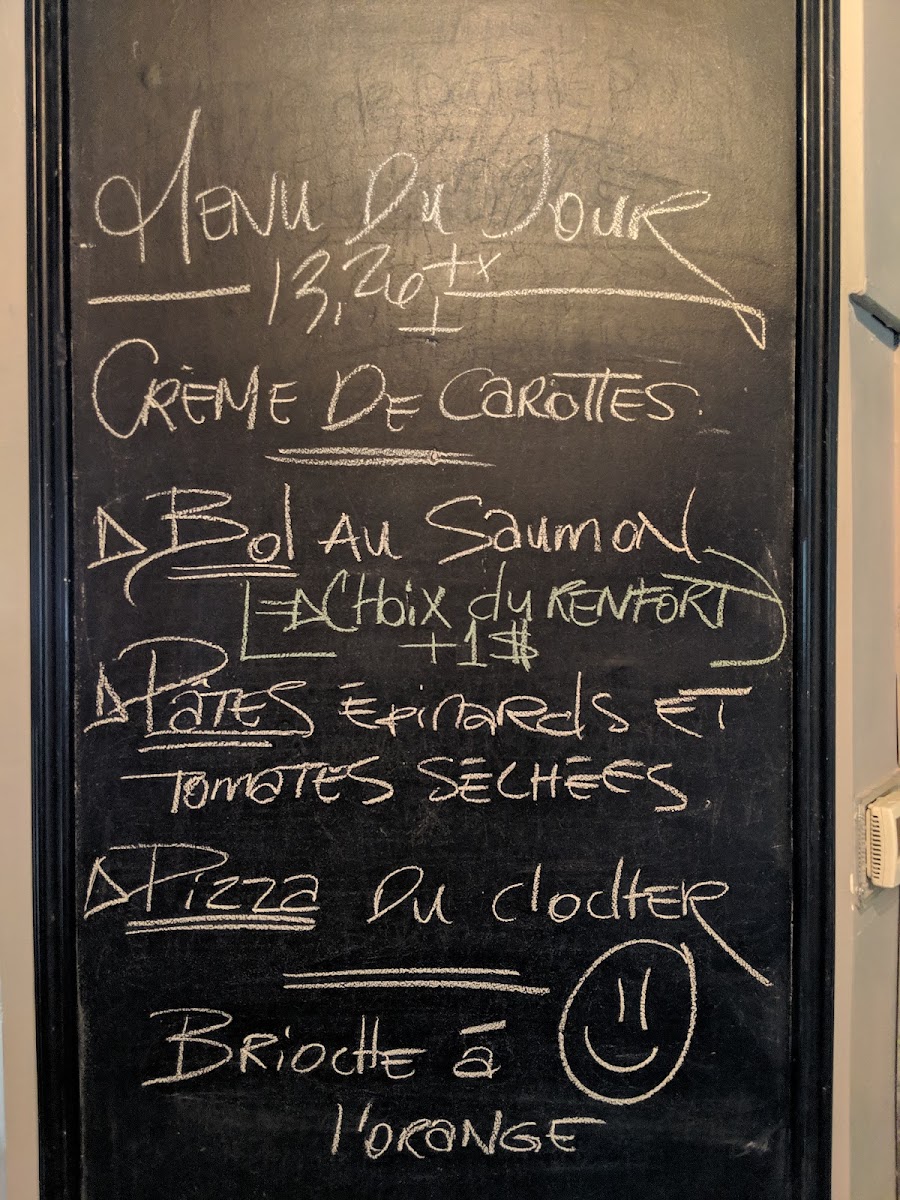 MENU DU JOUR
13,26 +tx
CRÈME DE CAROTTES
BOl AU SAUMON
CHOIX du RENFORT
+1$
PÂTES ÉPINARdS ET
TOMATES SÉCHÉES
PIZZA DU ClOCHER
BRIOCHE à
l'ORANGE